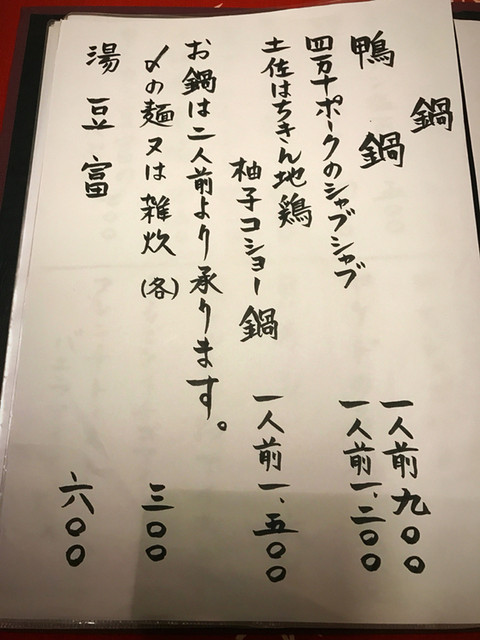 鍋
鴨鍋 一人前九〇〇
四万十ポークのシャブシャブ 一人前一、二〇〇
土佐はちきん地鶏
柚子コショー鍋 一人前一、五〇〇
お鍋は二人前より承ります。
〆の麺又は雑炊(各) 三〇〇
湯豆富 六〇〇